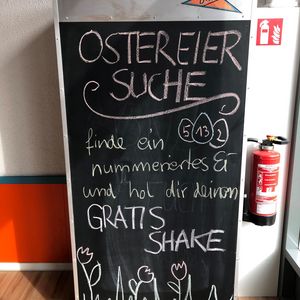 OSTEREIER
SUCHE
5 13 2
finde ein
nummeriertes Ei
und hol dir deinen
GRATIS
SHAKE